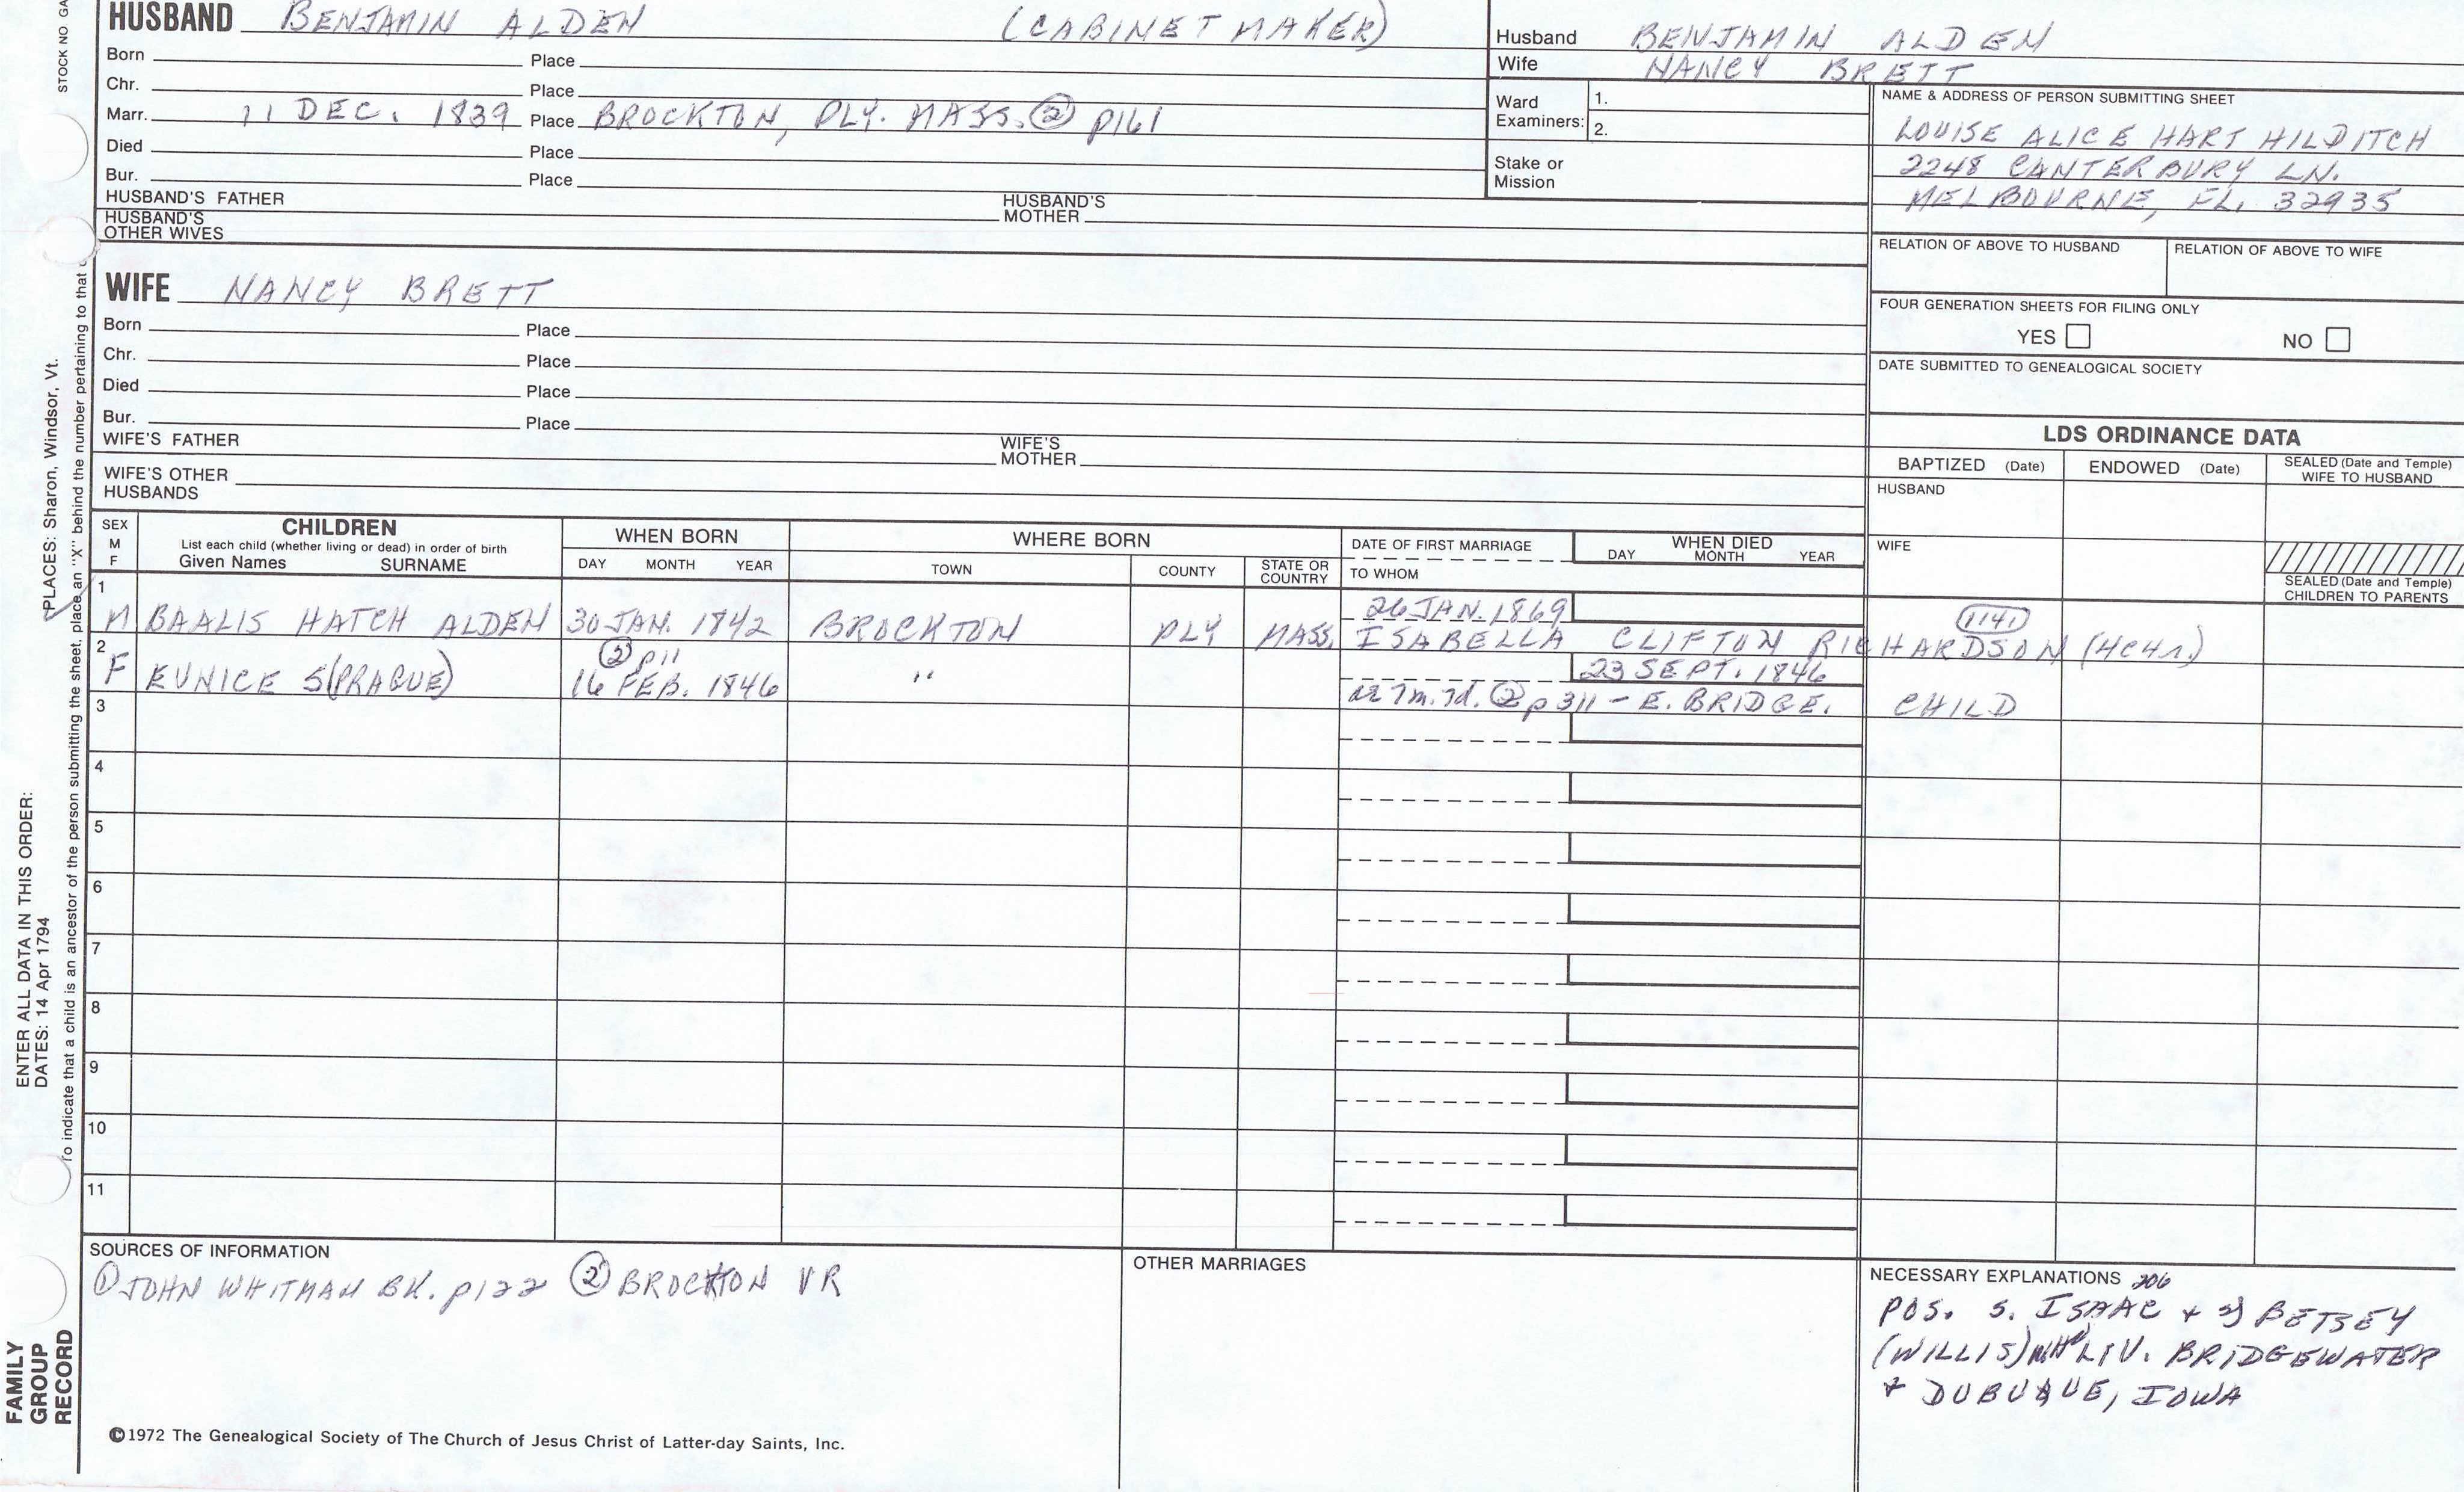 STOCK NO GA
HUSBAND BENJAMIN ALDEN (CABINET MAKER)
Born Place
Chr. Place
Marr. 11 DEC. 1839 Place BROCKTON, PLY. MASS. ② p161
Died Place
Bur. Place
HUSBAND'S FATHER HUSBAND'S MOTHER
HUSBAND'S OTHER WIVES
Husband BENJAMIN ALDEN
Wife NANCY BRETT
Ward Examiners: 1.
2.
Stake or Mission
NAME & ADDRESS OF PERSON SUBMITTING SHEET
LOUISE ALICE HART HILDITCH
2248 CANTERBURY LN.
MELBOURNE, FL. 32935
RELATION OF ABOVE TO HUSBAND RELATION OF ABOVE TO WIFE
FOUR GENERATION SHEETS FOR FILING ONLY
YES NO
DATE SUBMITTED TO GENEALOGICAL SOCIETY
WIFE NANCY BRETT
Born Place
Chr. Place
Died Place
Bur. Place
WIFE'S FATHER WIFE'S MOTHER
WIFE'S OTHER HUSBANDS
LDS ORDINANCE DATA
BAPTIZED (Date) ENDOWED (Date) SEALED (Date and Temple) WIFE TO HUSBAND
HUSBAND
WIFE
SEALED (Date and Temple) CHILDREN TO PARENTS
SEX M F
CHILDREN
List each child (whether living or dead) in order of birth
Given Names SURNAME
WHEN BORN
DAY MONTH YEAR
WHERE BORN
TOWN COUNTY STATE OR COUNTRY
DATE OF FIRST MARRIAGE
TO WHOM
WHEN DIED
DAY MONTH YEAR
1
26 JAN. 1869 1141
M BAALIS HATCH ALDEN 30 JAN. 1842 BROCKTON PLY MASS. ISABELLA CLIFTON RICHARDSON (4ch.)
2 ② p11 23 SEPT. 1846
F EUNICE S(PRAGUE) 16 FEB. 1846 " ae 7m. 7d. ② p 311 - E. BRIDGE. CHILD
3
4
5
6
7
8
9
10
11
SOURCES OF INFORMATION
① JOHN WHITMAN BK. p122 ② BROCKTON VR
OTHER MARRIAGES
NECESSARY EXPLANATIONS 206
POS. S. ISAAC + 2) BETSEY
(WILLIS) LIV. BRIDGEWATER
+ DUBUQUE, IOWA
©1972 The Genealogical Society of The Church of Jesus Christ of Latter-day Saints, Inc.
FAMILY
GROUP
RECORD
ENTER ALL DATA IN THIS ORDER:
DATES: 14 Apr 1794
PLACES: Sharon, Windsor, Vt.
To indicate that a child is an ancestor of the person submitting the sheet, place an "X" behind the number pertaining to that